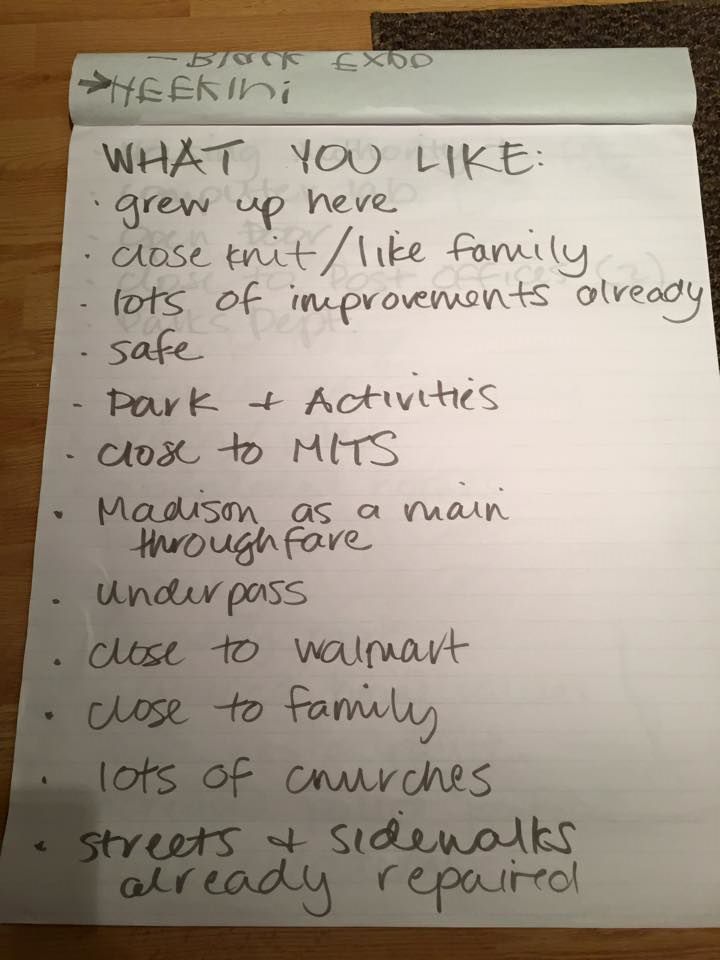 - Black Expo
→ HEEKIN i
WHAT YOU LIKE:
· grew up here
· close knit/like family
· lots of improvements already
· safe
- Park + Activities
· close to MITS
· Madison as a main
throughfare
· underpass
· close to walmart
· close to family
· lots of churches
· streets + sidewalks
already repaired